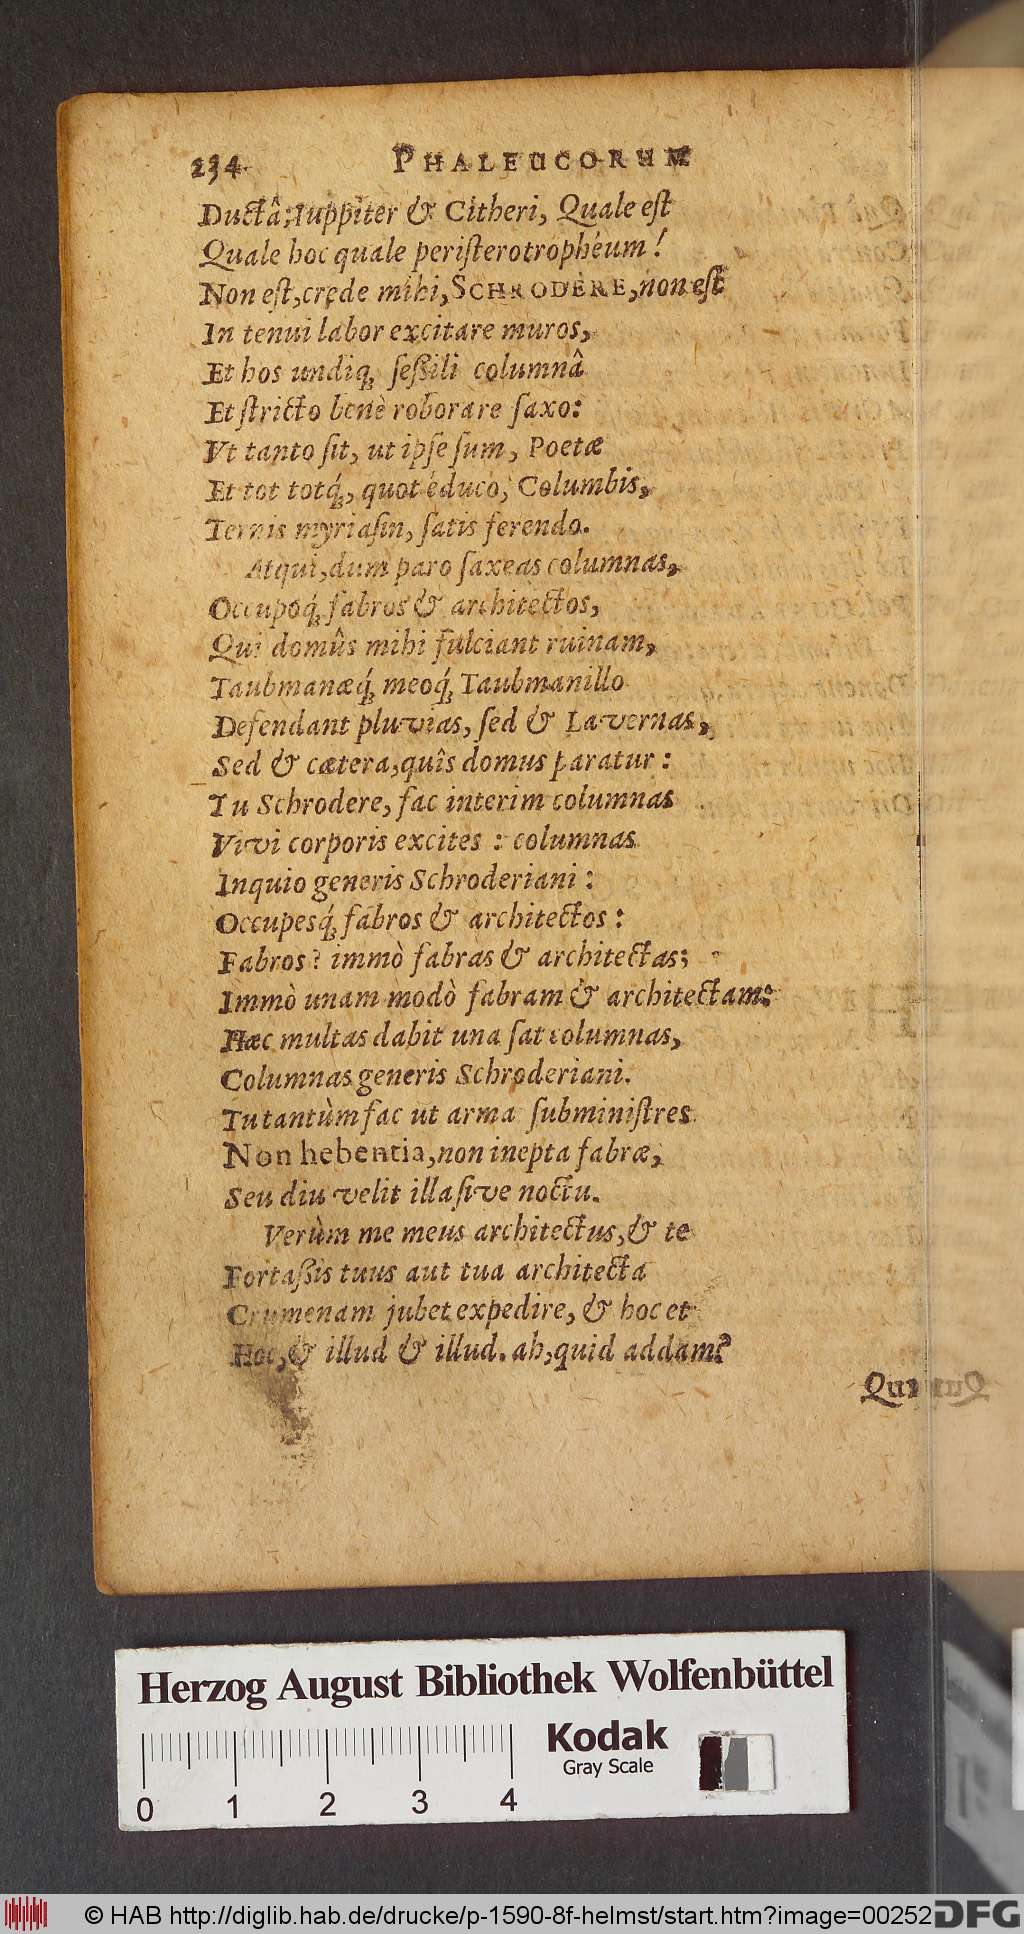 234 PHALEUCORUM
Ductâ; Iuppiter & Citheri, Quale est
Quale hoc quale peristerotrophéum!
Non est, crede mihi, SCHRODERE, non est
In tenui labor excitare muros,
Et hos undiq; seßili columnâ
Et stricto benè roborare saxo:
Vt tanto sit, ut ipse sum, Poetæ
Et tot totq́;, quot éduco, Columbis,
Ternis myriasin, satis ferendo.
Atqui, dum paro saxeas columnas,
Occupoq́; fabros & architectos,
Qui domûs mihi fulciant ruinam,
Taubmanæq́; meoq́; Taubmanillo
Defendant pluvias, sed & Lavernas,
Sed & cætera, quîs domus paratur:
Tu Schrodere, fac interim columnas
Vivi corporis excites: columnas
Inquio generis Schroderiani:
Occupesq́; fabros & architectos:
Fabros? immò fabras & architectas;
Immò unam modò fabram & architectam:
Hæc multas dabit una sat columnas,
Columnas generis Schroderiani.
Tu tantùm fac ut arma subministres
Non hebentia, non inepta fabræ,
Seu diu velit illa sive noctu.
Verùm me meus architectus, & te
Fortaßis tuus aut tua architecta
Crumenam jubet expedire, & hoc et
Hoc, & illud & illud. ah, quid addam?
Herzog August Bibliothek Wolfenbüttel
Kodak
Gray Scale
0 1 2 3 4
© HAB http://diglib.hab.de/drucke/p-1590-8f-helmst/start.htm?image=00252
DFG